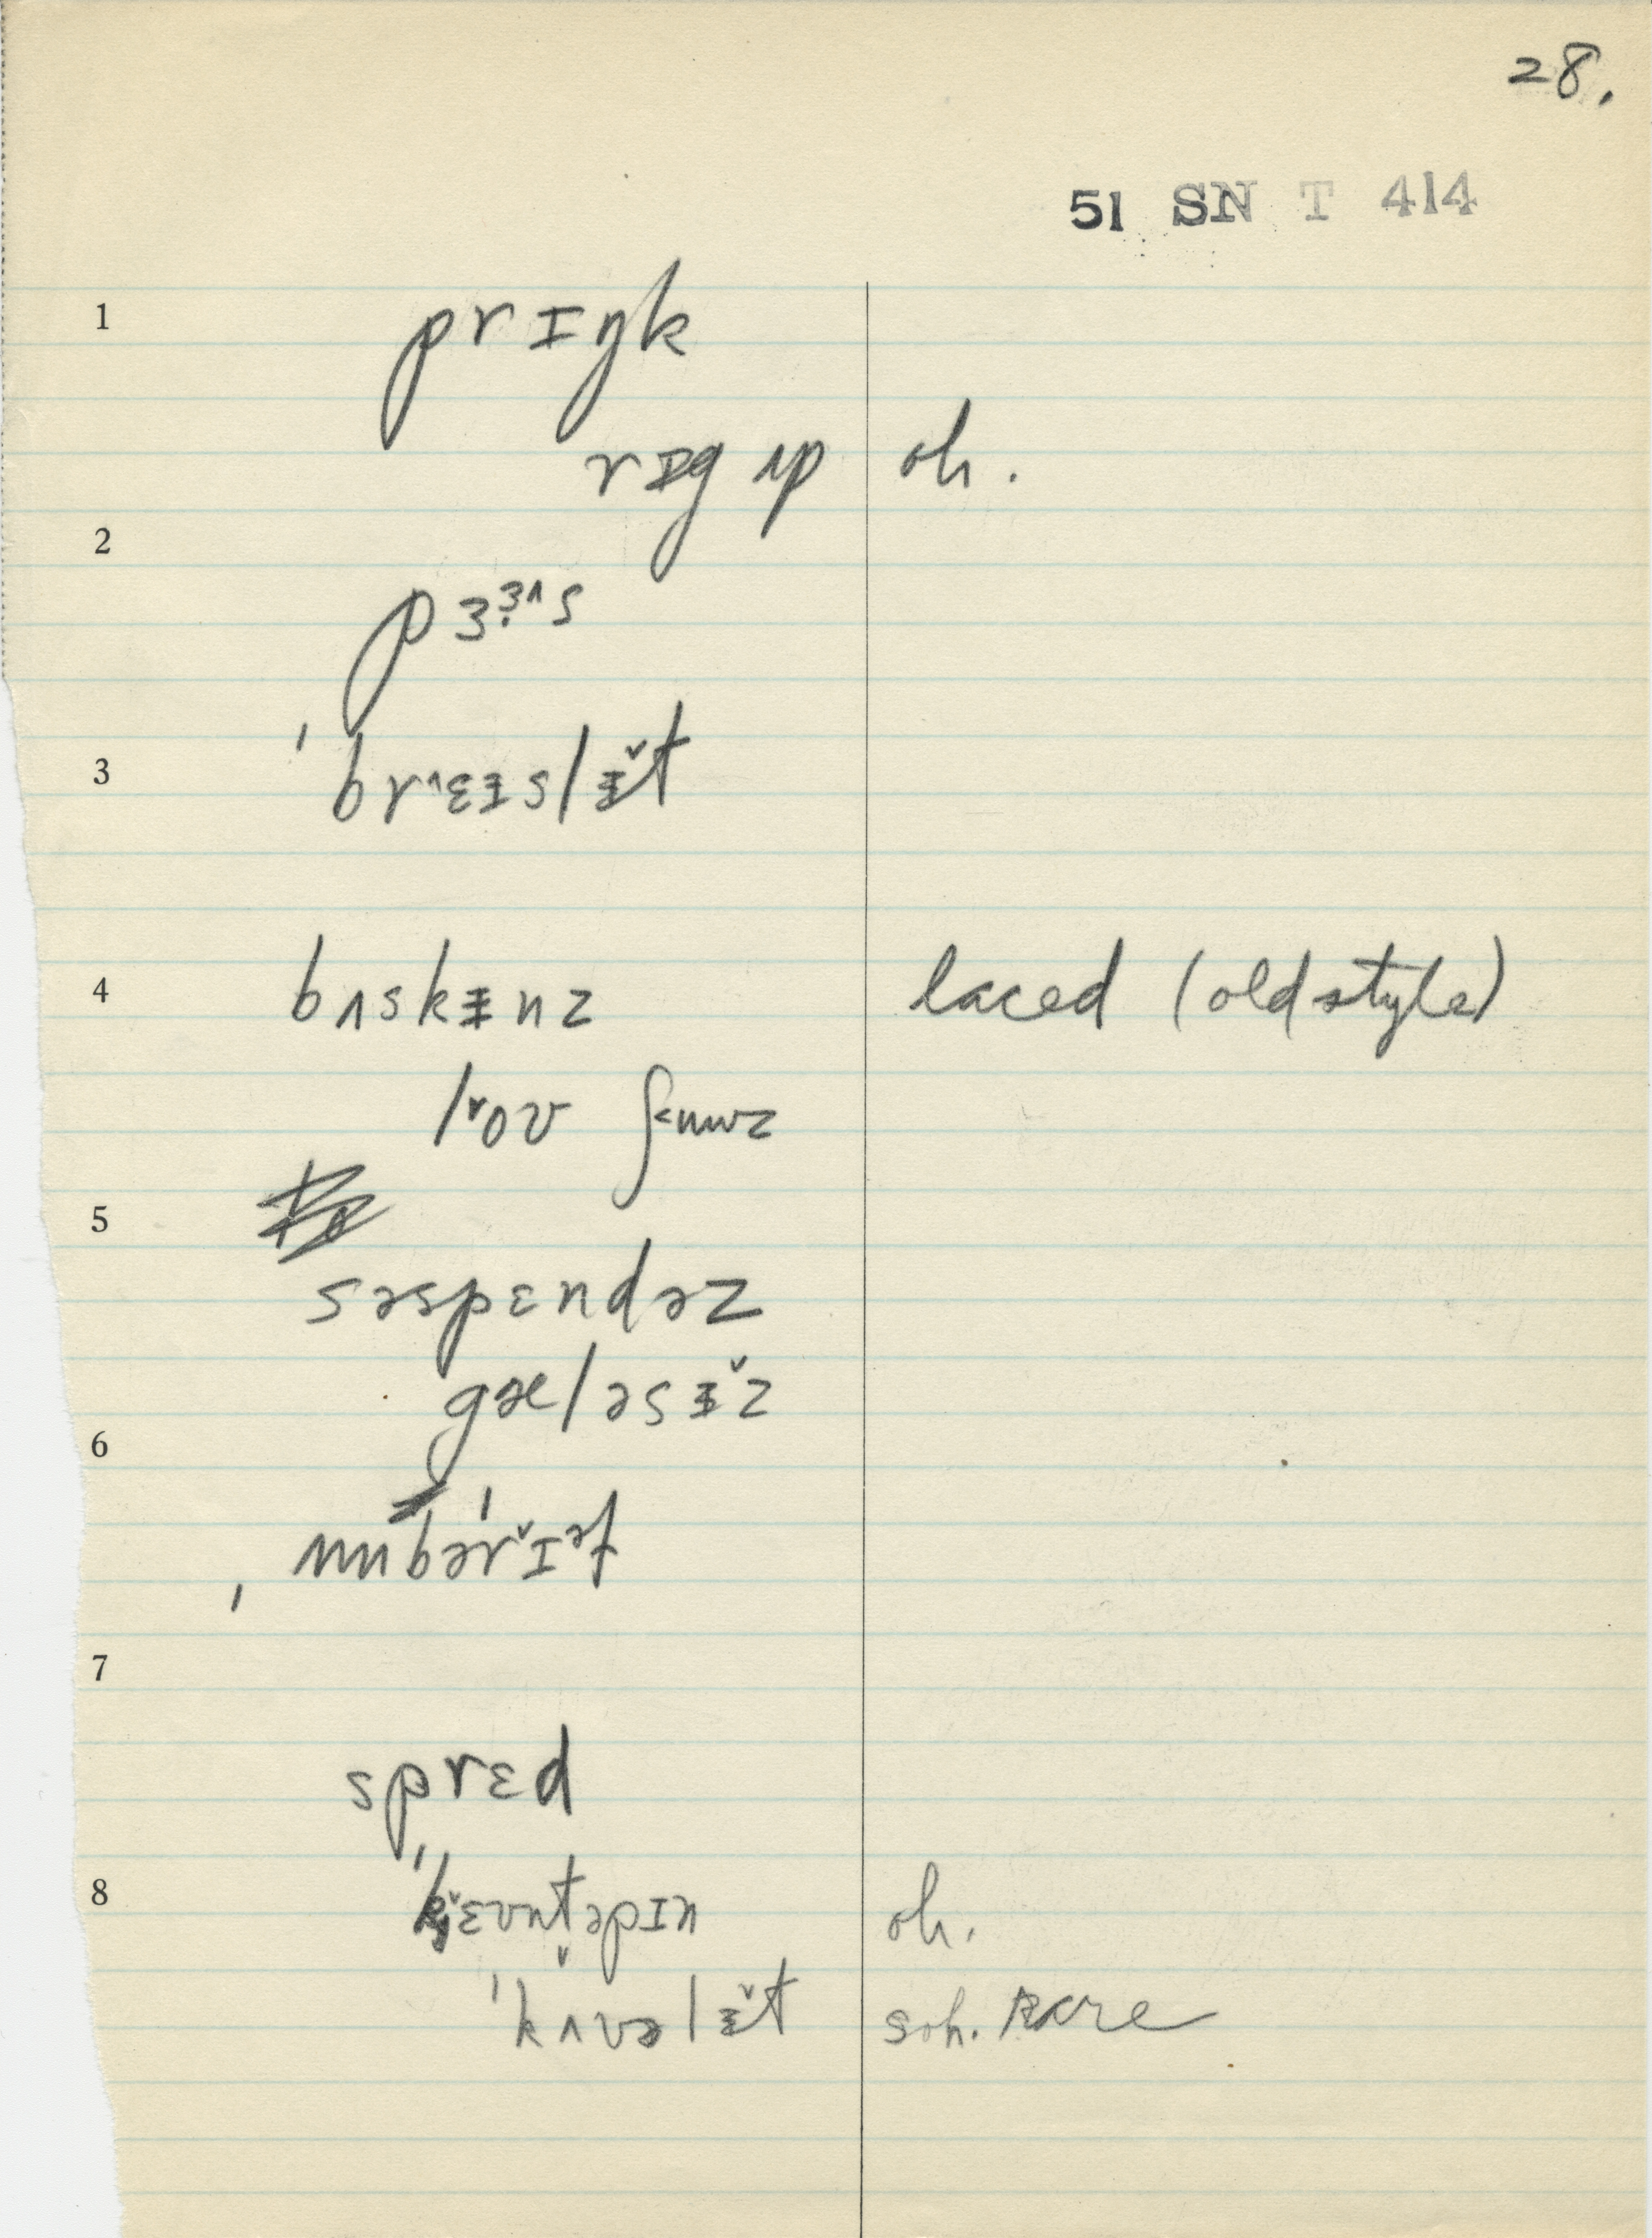 28.
51 SN T 414
1
prɪŋk
rɪg ʌp oh.
2
pɜɜ̣^s
3
ˈbr^ɛɪslɨ̌t
4
bʌskɨnz laced (old style)
lˇoʊ ʃuuz
5
səspɛndəz
gæləsɨˇz
6
ˌʌmbəˈrˇɪəf
7
sprɛd
8
oh.
ˈkʌvəlɨˇt soh. Rare